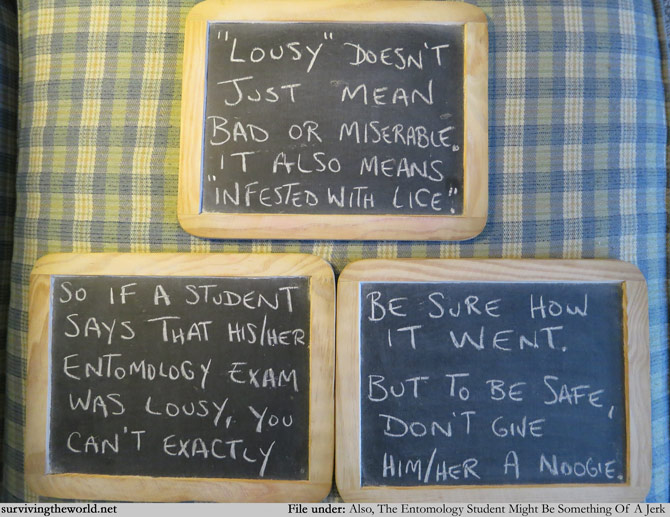 "LOUSY" DOESN'T
JUST MEAN
BAD OR MISERABLE.
IT ALSO MEANS
"INFESTED WITH LICE."
SO IF A STUDENT
SAYS THAT HIS/HER
ENTOMOLOGY EXAM
WAS LOUSY, YOU
CAN'T EXACTLY
BE SURE HOW
IT WENT.
BUT TO BE SAFE,
DON'T GIVE
HIM/HER A NOOGIE.
survivingtheworld.net
File under: Also, The Entomology Student Might Be Something Of A Jerk